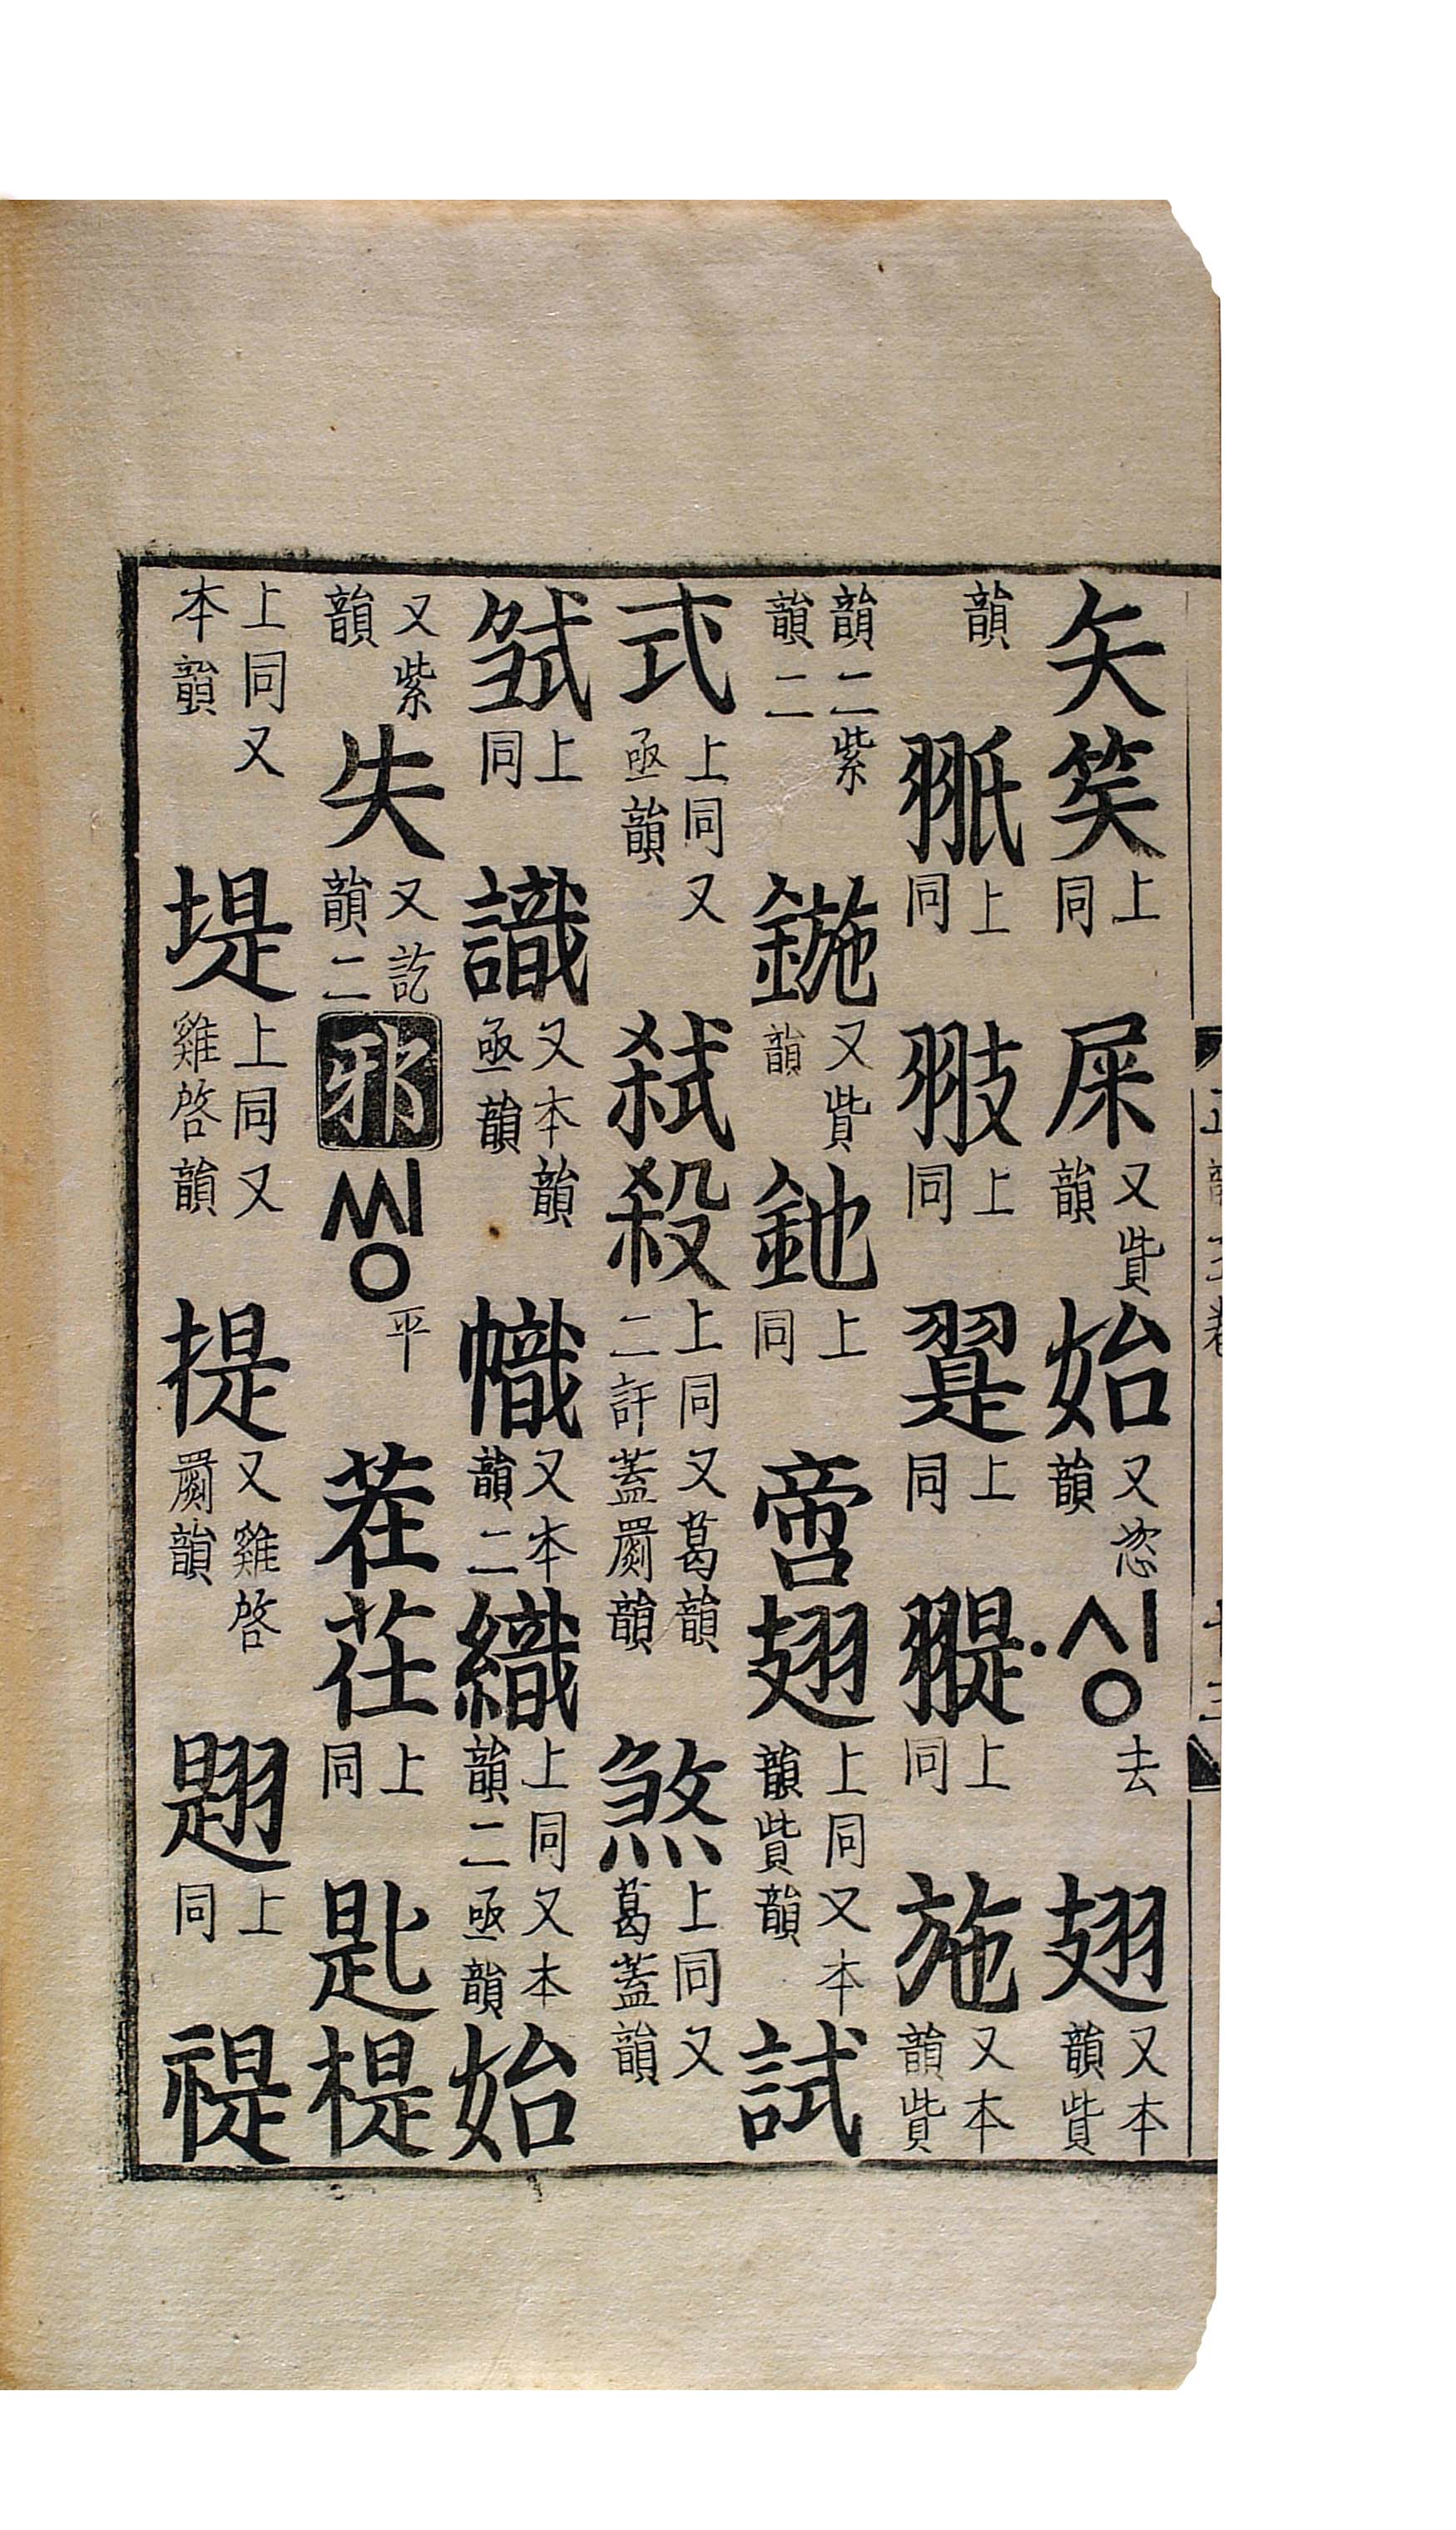 矢笶上同屎又貲韻始又恣韻·싱去翅又本韻貲
韻上同翄上同翨上同上同施又本韻貲
韻二紫韻二鍦又貲韻鉇上同啻翅上同又本韻貲韻試
式上同又亟韻弑殺上同又葛韻二訐蓋罽韻煞上同又葛蓋韻
上同識又本韻亟韻幟又本韻二織上同又本韻二亟韻始
又紫韻失又訖韻二邪씽平茬茌上同匙㮛
上同又本韻堤上同又雞啓韻提又雞啓罽韻上同禔